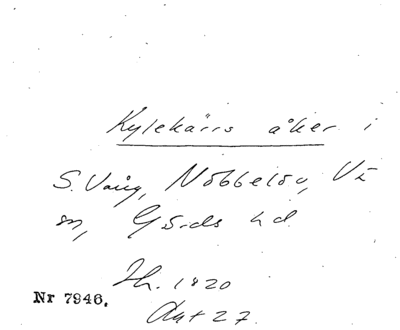 Kylekärrs åker i
S. Vång, Nöbbelöv, Vä
sn, Gärds hd.
Th. 1820
Akt 27.
Nr 7946.